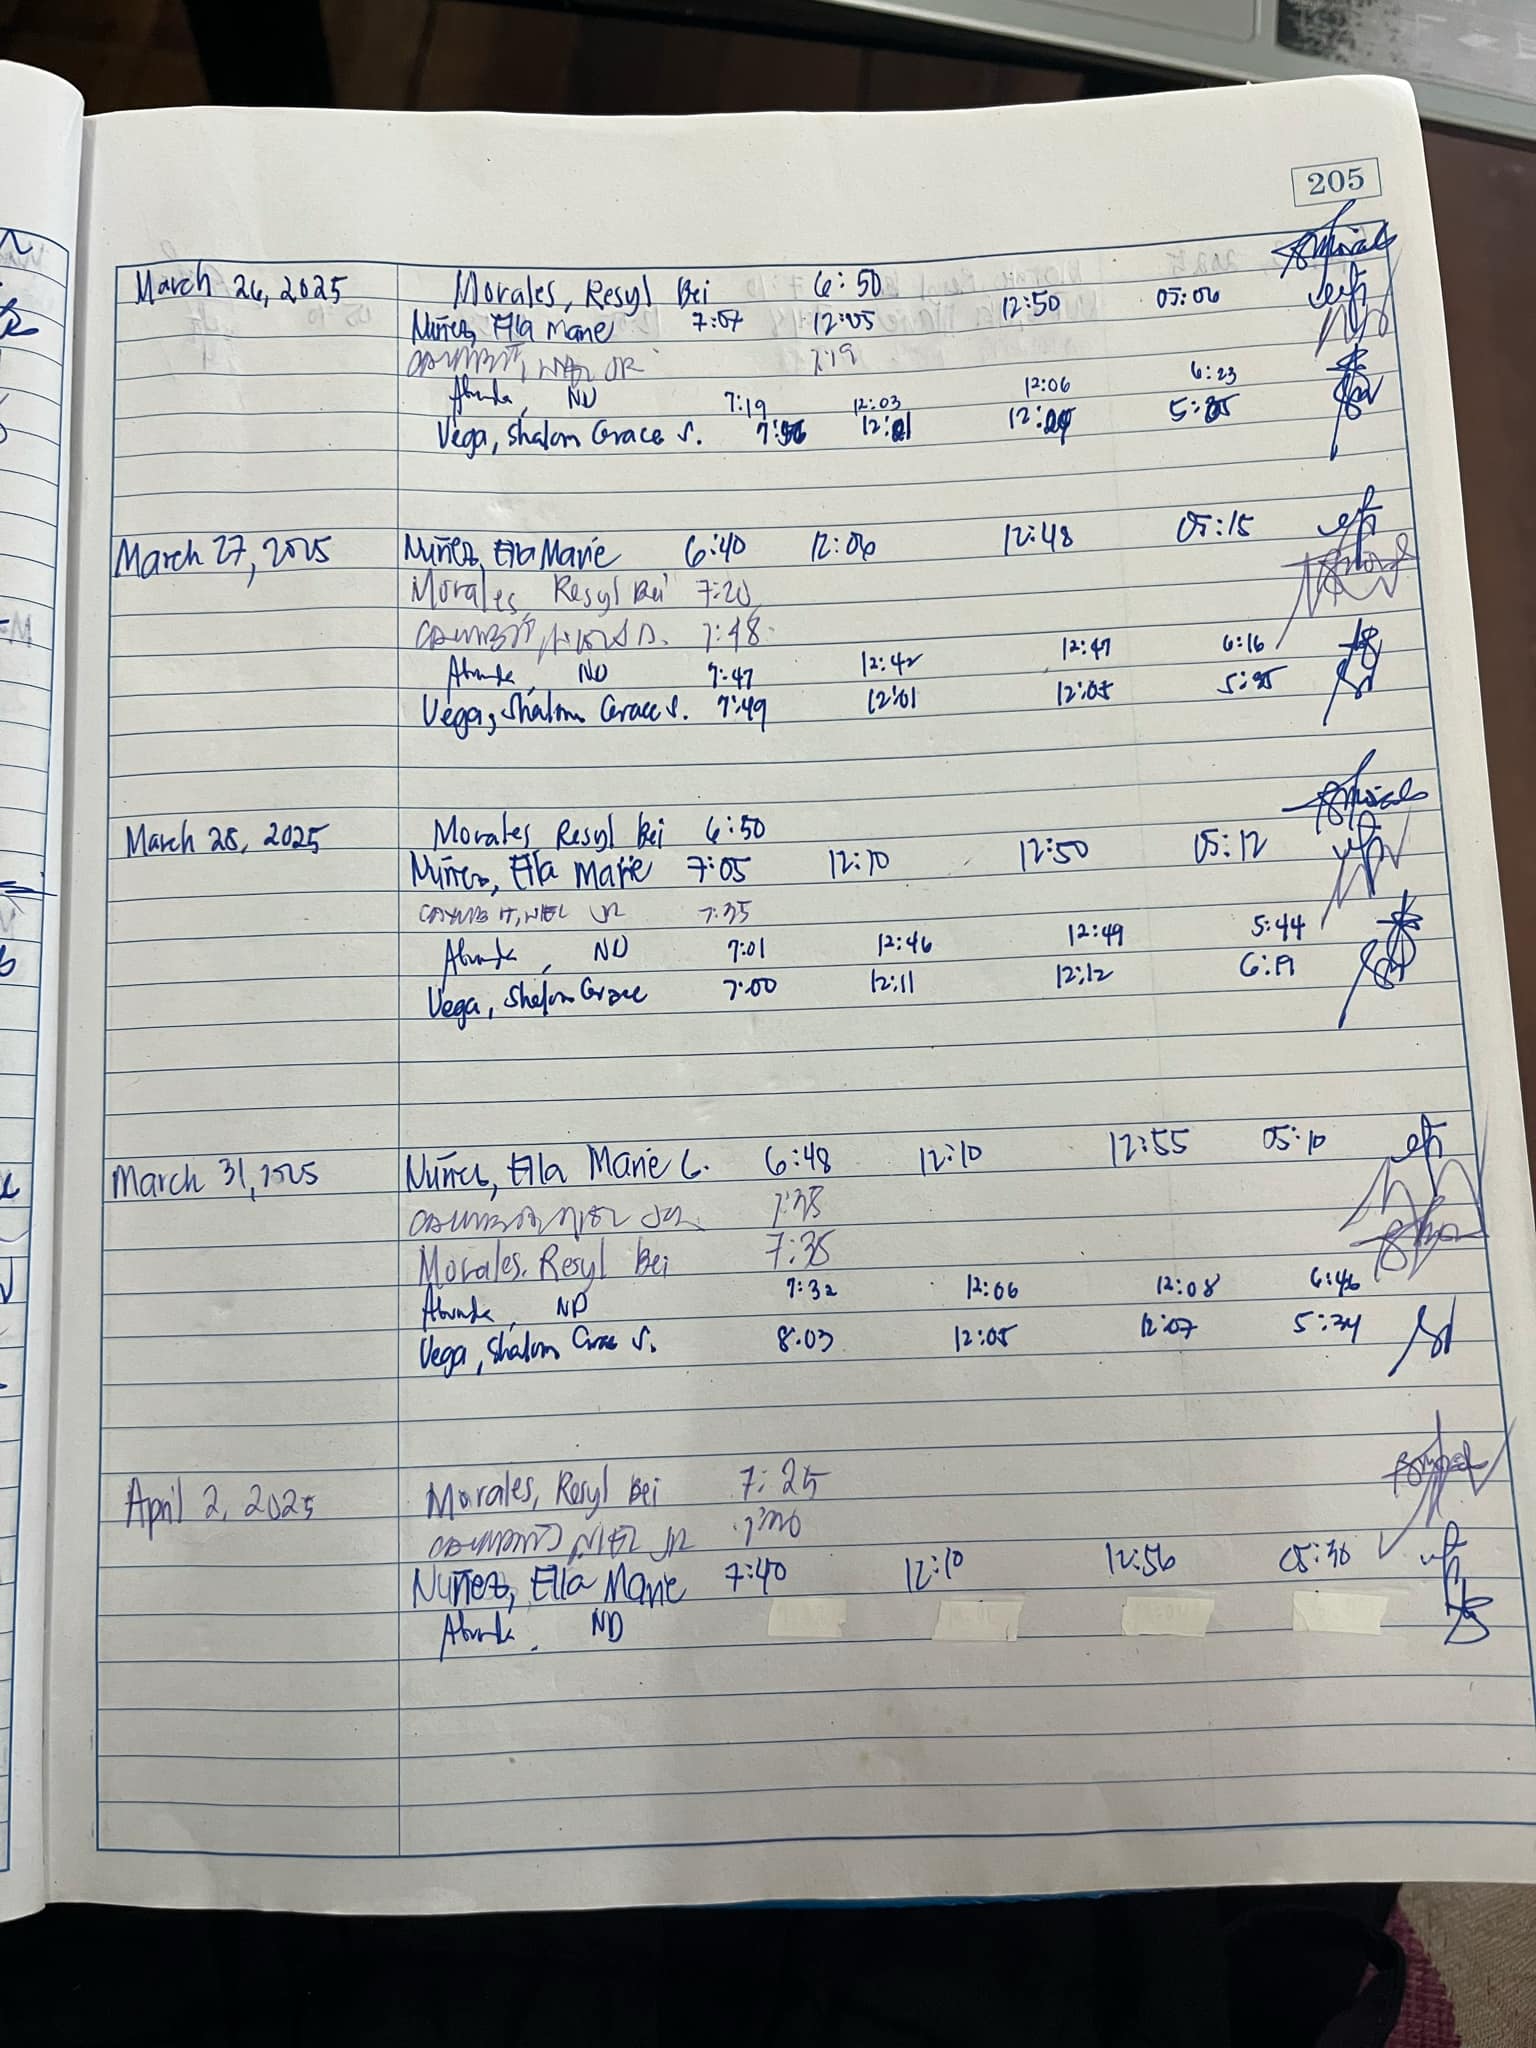 205
March 26, 2025 Morales, Resyl Bei 6:50
Nuñez, Ella Marie 7:07 12:05 12:50 05:06
JR 7:19
Abunda, ND 7:19 12:03 12:06 6:23
Vega, Shalom Grace S. 12:21 12:24
March 27, 2025 Nuñez, Ella Marie 6:40 12:06 12:48 05:15
Morales, Resyl Bei 7:20
7:48
Abunda, ND 7:47 12:42 12:47 6:16
Vega, Shalom Grace S. 7:49 12:01 12:05
March 28, 2025 Morales Resyl Bei 6:50
Nuñez, Ella Marie 7:05 12:10 12:50 05:12
NIEL JR 7:35
Abunda, ND 7:01 12:46 12:49 5:44
Vega, Shalom Grace 7:00 12:11 12:12 6:19
March 31, 2025 Nuñez, Ella Marie C. 6:48 12:10 12:55 05:10
NIEL JR.
Morales, Resyl Bei 7:35
Abunda, ND 7:32 12:06 12:08 6:46
Vega, Shalom Grace S. 8:03 12:05 12:07 5:34
April 2, 2025 Morales, Resyl Bei 7:25
NIEL JR
Nuñez, Ella Marie 7:40 12:10 12:56 05:30
Abunda, ND